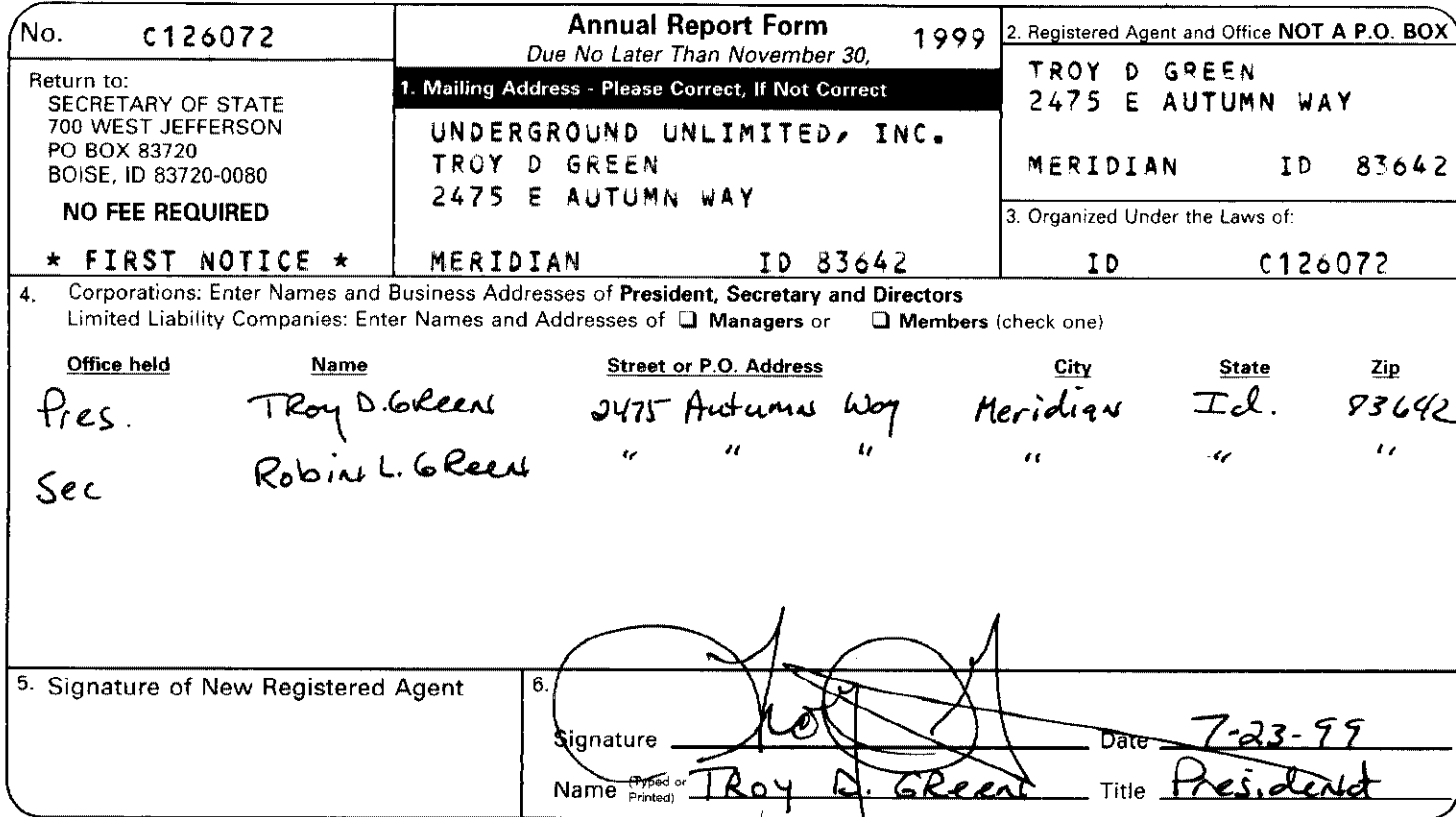 No. C126072
Return to:
SECRETARY OF STATE
700 WEST JEFFERSON
PO BOX 83720
BOISE, ID 83720-0080
NO FEE REQUIRED
* FIRST NOTICE *
Annual Report Form 1999
Due No Later Than November 30,
1. Mailing Address - Please Correct, If Not Correct
UNDERGROUND UNLIMITED, INC.
TROY D GREEN
2475 E AUTUMN WAY
MERIDIAN ID 83642
2. Registered Agent and Office NOT A P.O. BOX
TROY D GREEN
2475 E AUTUMN WAY
MERIDIAN ID 83642
3. Organized Under the Laws of:
ID C126072
4. Corporations: Enter Names and Business Addresses of President, Secretary and Directors
Limited Liability Companies: Enter Names and Addresses of ❑ Managers or ❑ Members (check one)
Office held Name Street or P.O. Address City State Zip
Pres. Troy D. Green 2475 Autumn Way Meridian Id. 83642
Sec Robin L. Green " " " " " "
5. Signature of New Registered Agent
6.
Signature Date 7-23-99
Name (Typed or Printed) Troy D. Green Title President